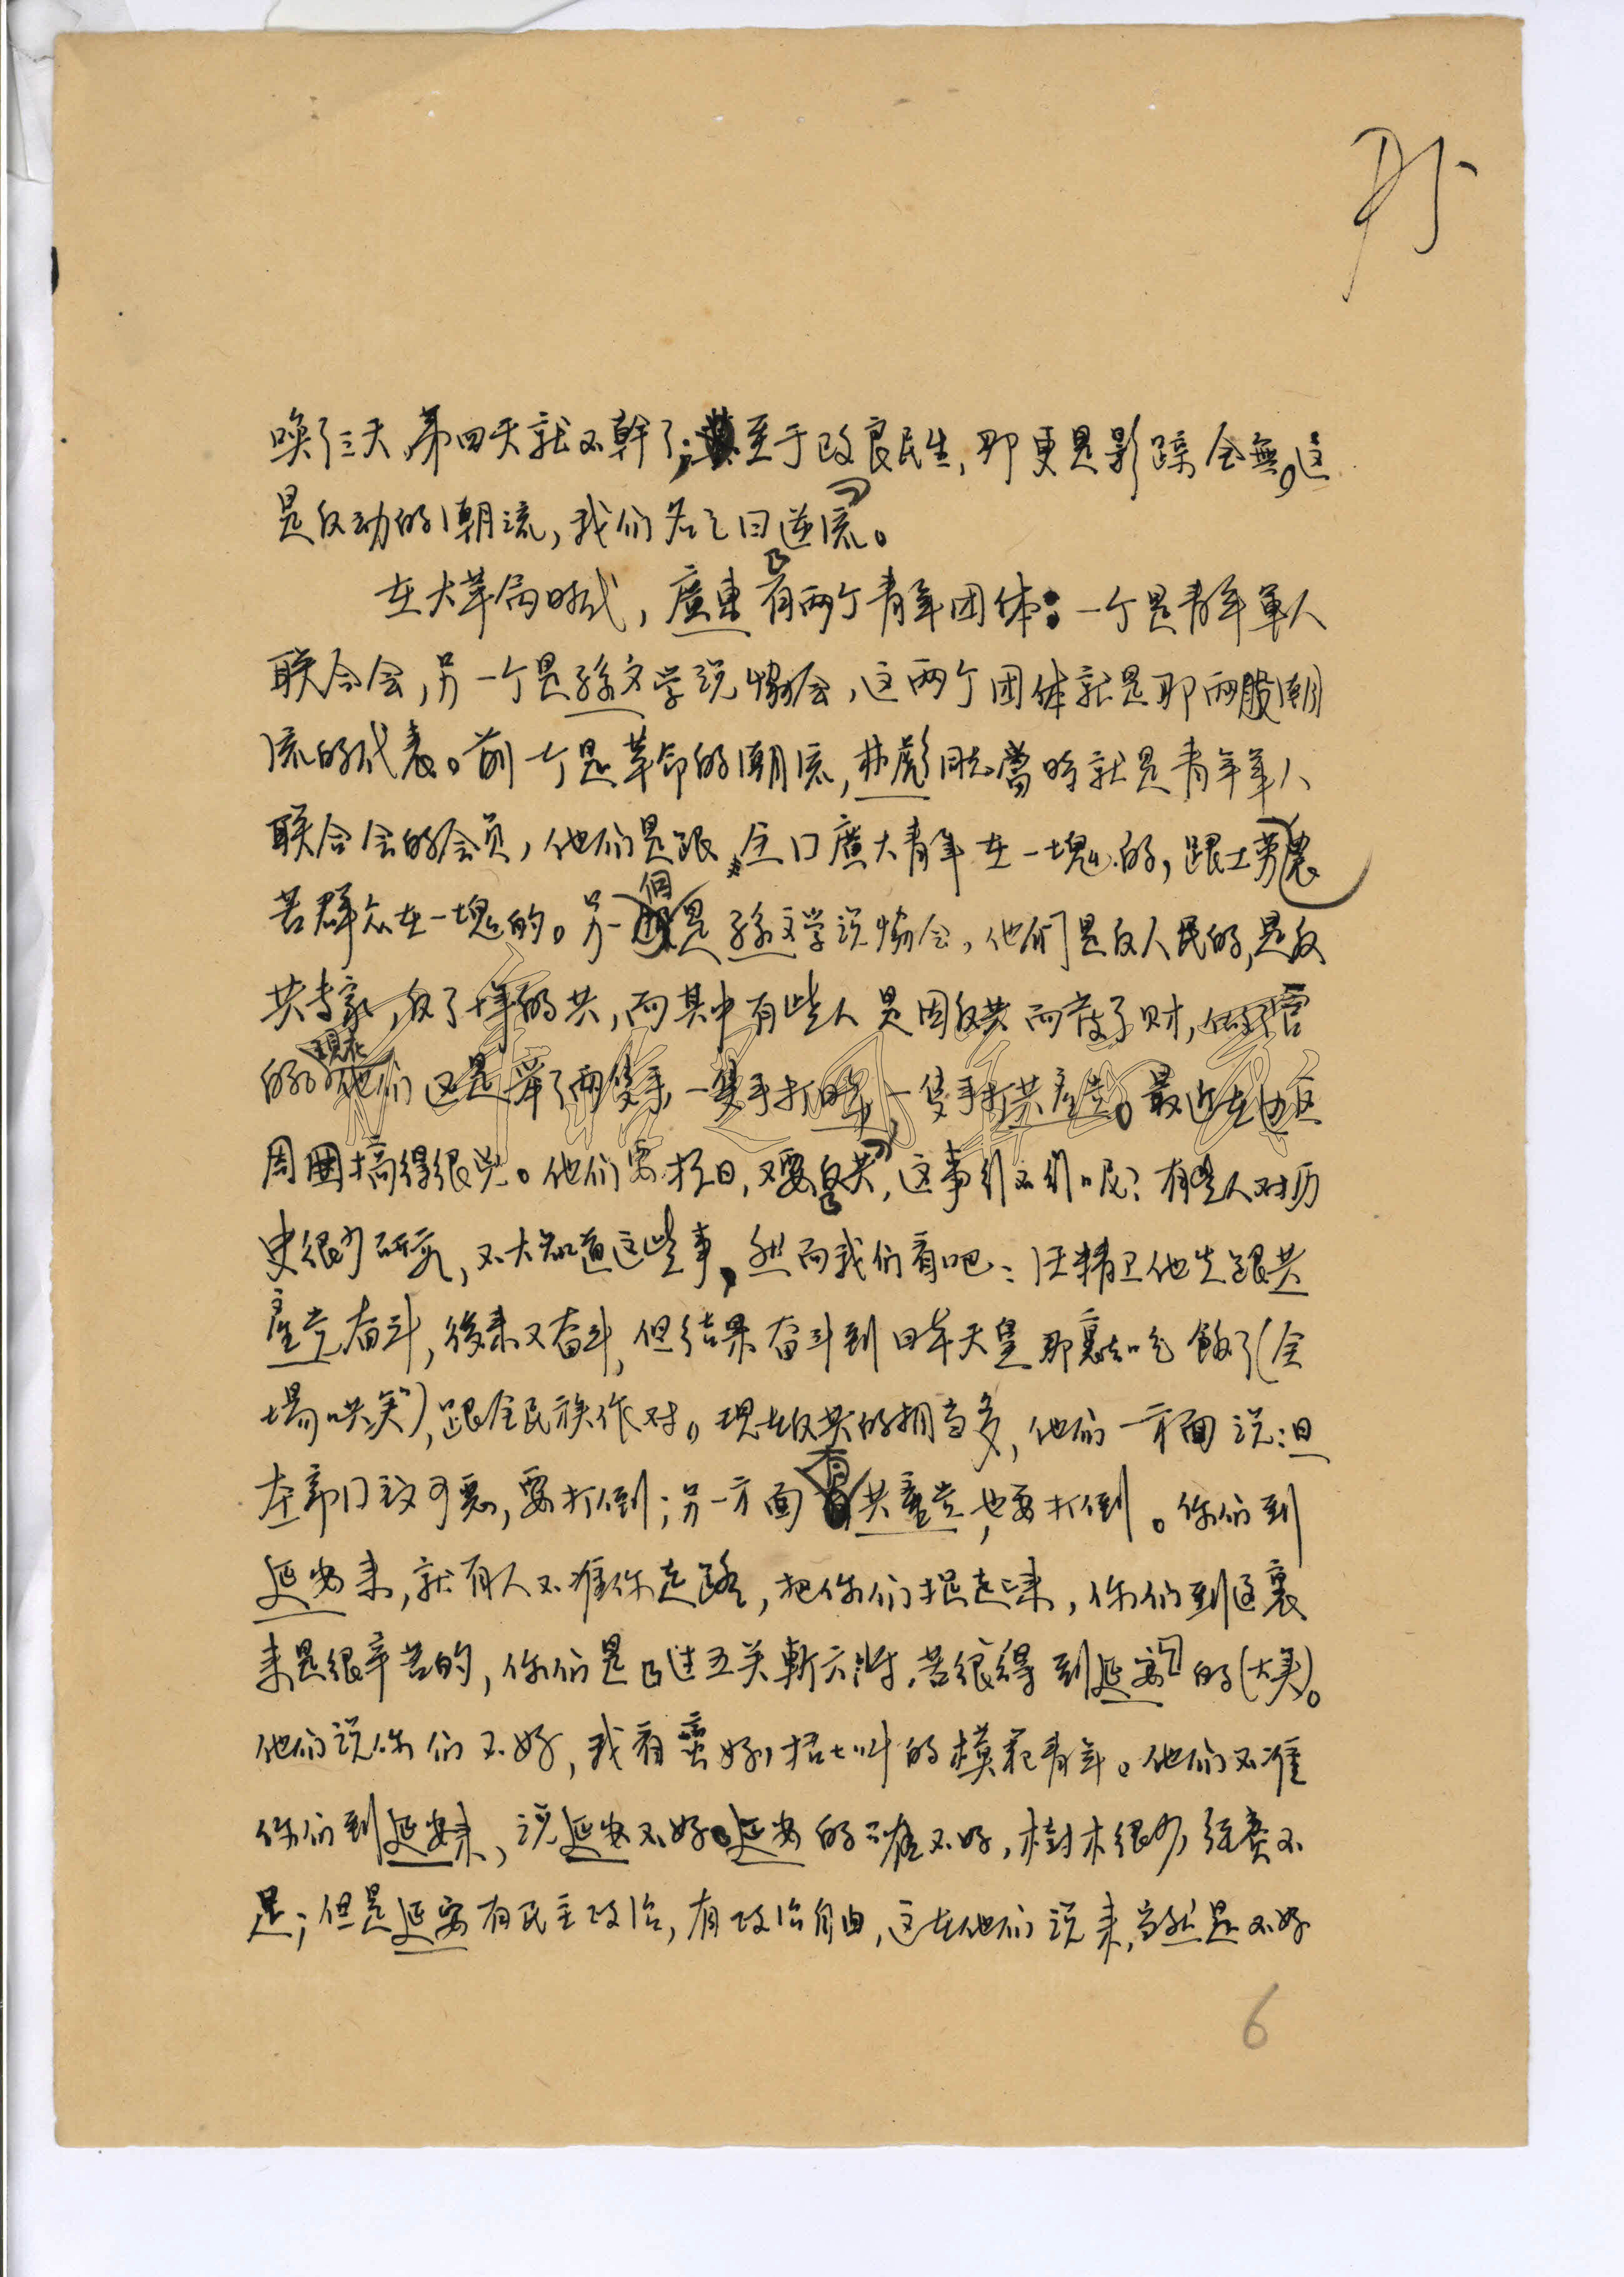 唤了三天,第四天就不幹了;至于改良民生,那更是影踪全無。这
是反动的潮流,我们名之曰逆流。
在大革命时代,廣東有两个青年团体:一个是青年軍人
联合会,另一个是孫文学说協会,这两个团体就是那两股潮
流的代表。前一个是革命的潮流,林彪同志當時就是青年軍人
联合会的会员,他们是跟全口廣大青年在一塊的,跟工農勞
苦群众在一塊的。另一個是孫文学说協会,他们是反人民的,是反
共专家,反了十年的共,而其中有些人是因反共而发了财,
的。現在他们还是舉了两隻手,一隻手打日本,一隻手打共產党。最近在边区
周圍搞得很兇。他们要抗日,又要反共,这事行不行呢?有些人对历
史很少研究,不大知道这些事,然而我们看吧:汪精卫他先跟共
產党奋斗,後来又奋斗,但结果奋斗到日本天皇那裏去吃飯了(全
場哄笑),跟全民族作对。现在反共的相当多,他们一方面说:日
本帝口主义可惡,要打倒;另一方面有共產党,也要打倒。你们到
延安来,就有人不准你走路,把你们捉起来,你们到这裏
来是很辛苦的,你们是过五关斬六将,苦很得到延安的(大笑)。
他们说你们不好,我看蛮好,括括叫的模范青年。他们不准
你们到延安来,说延安不好。延安的確不好,樹木很少,经费不
足;但是延安有民主政治,有政治自由,这在他们说来,当然是不好
6